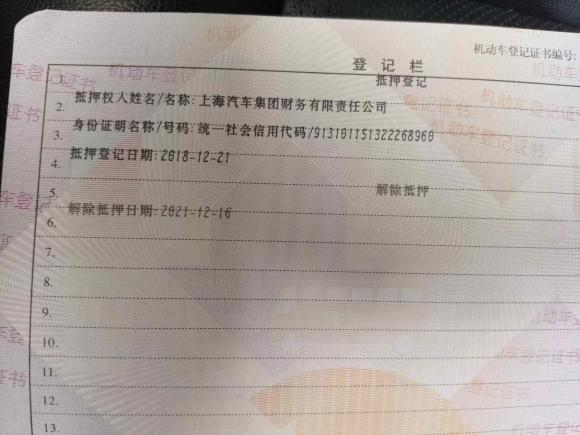 机动车登记证书编号:
登记栏
1. 抵押登记
2. 抵押权人姓名/名称:上海汽车集团财务有限责任公司
3. 身份证明名称/号码:统一社会信用代码/913101151322268960
4. 抵押登记日期:2018-12-21
5. 解除抵押
6. 解除抵押日期:2021-12-16
7.
8.
9.
10.
11.
12.
13.